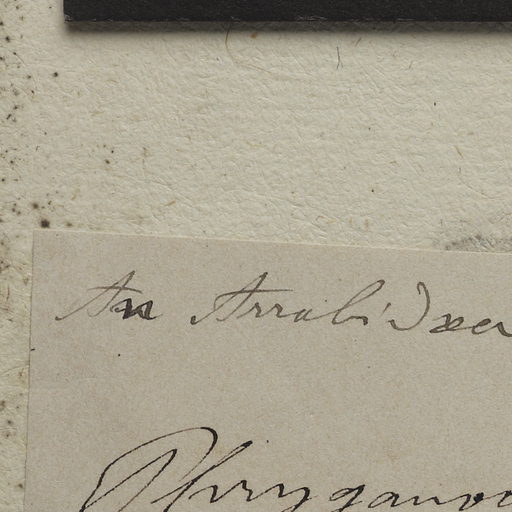 An Arrabidæa
Phryganoc